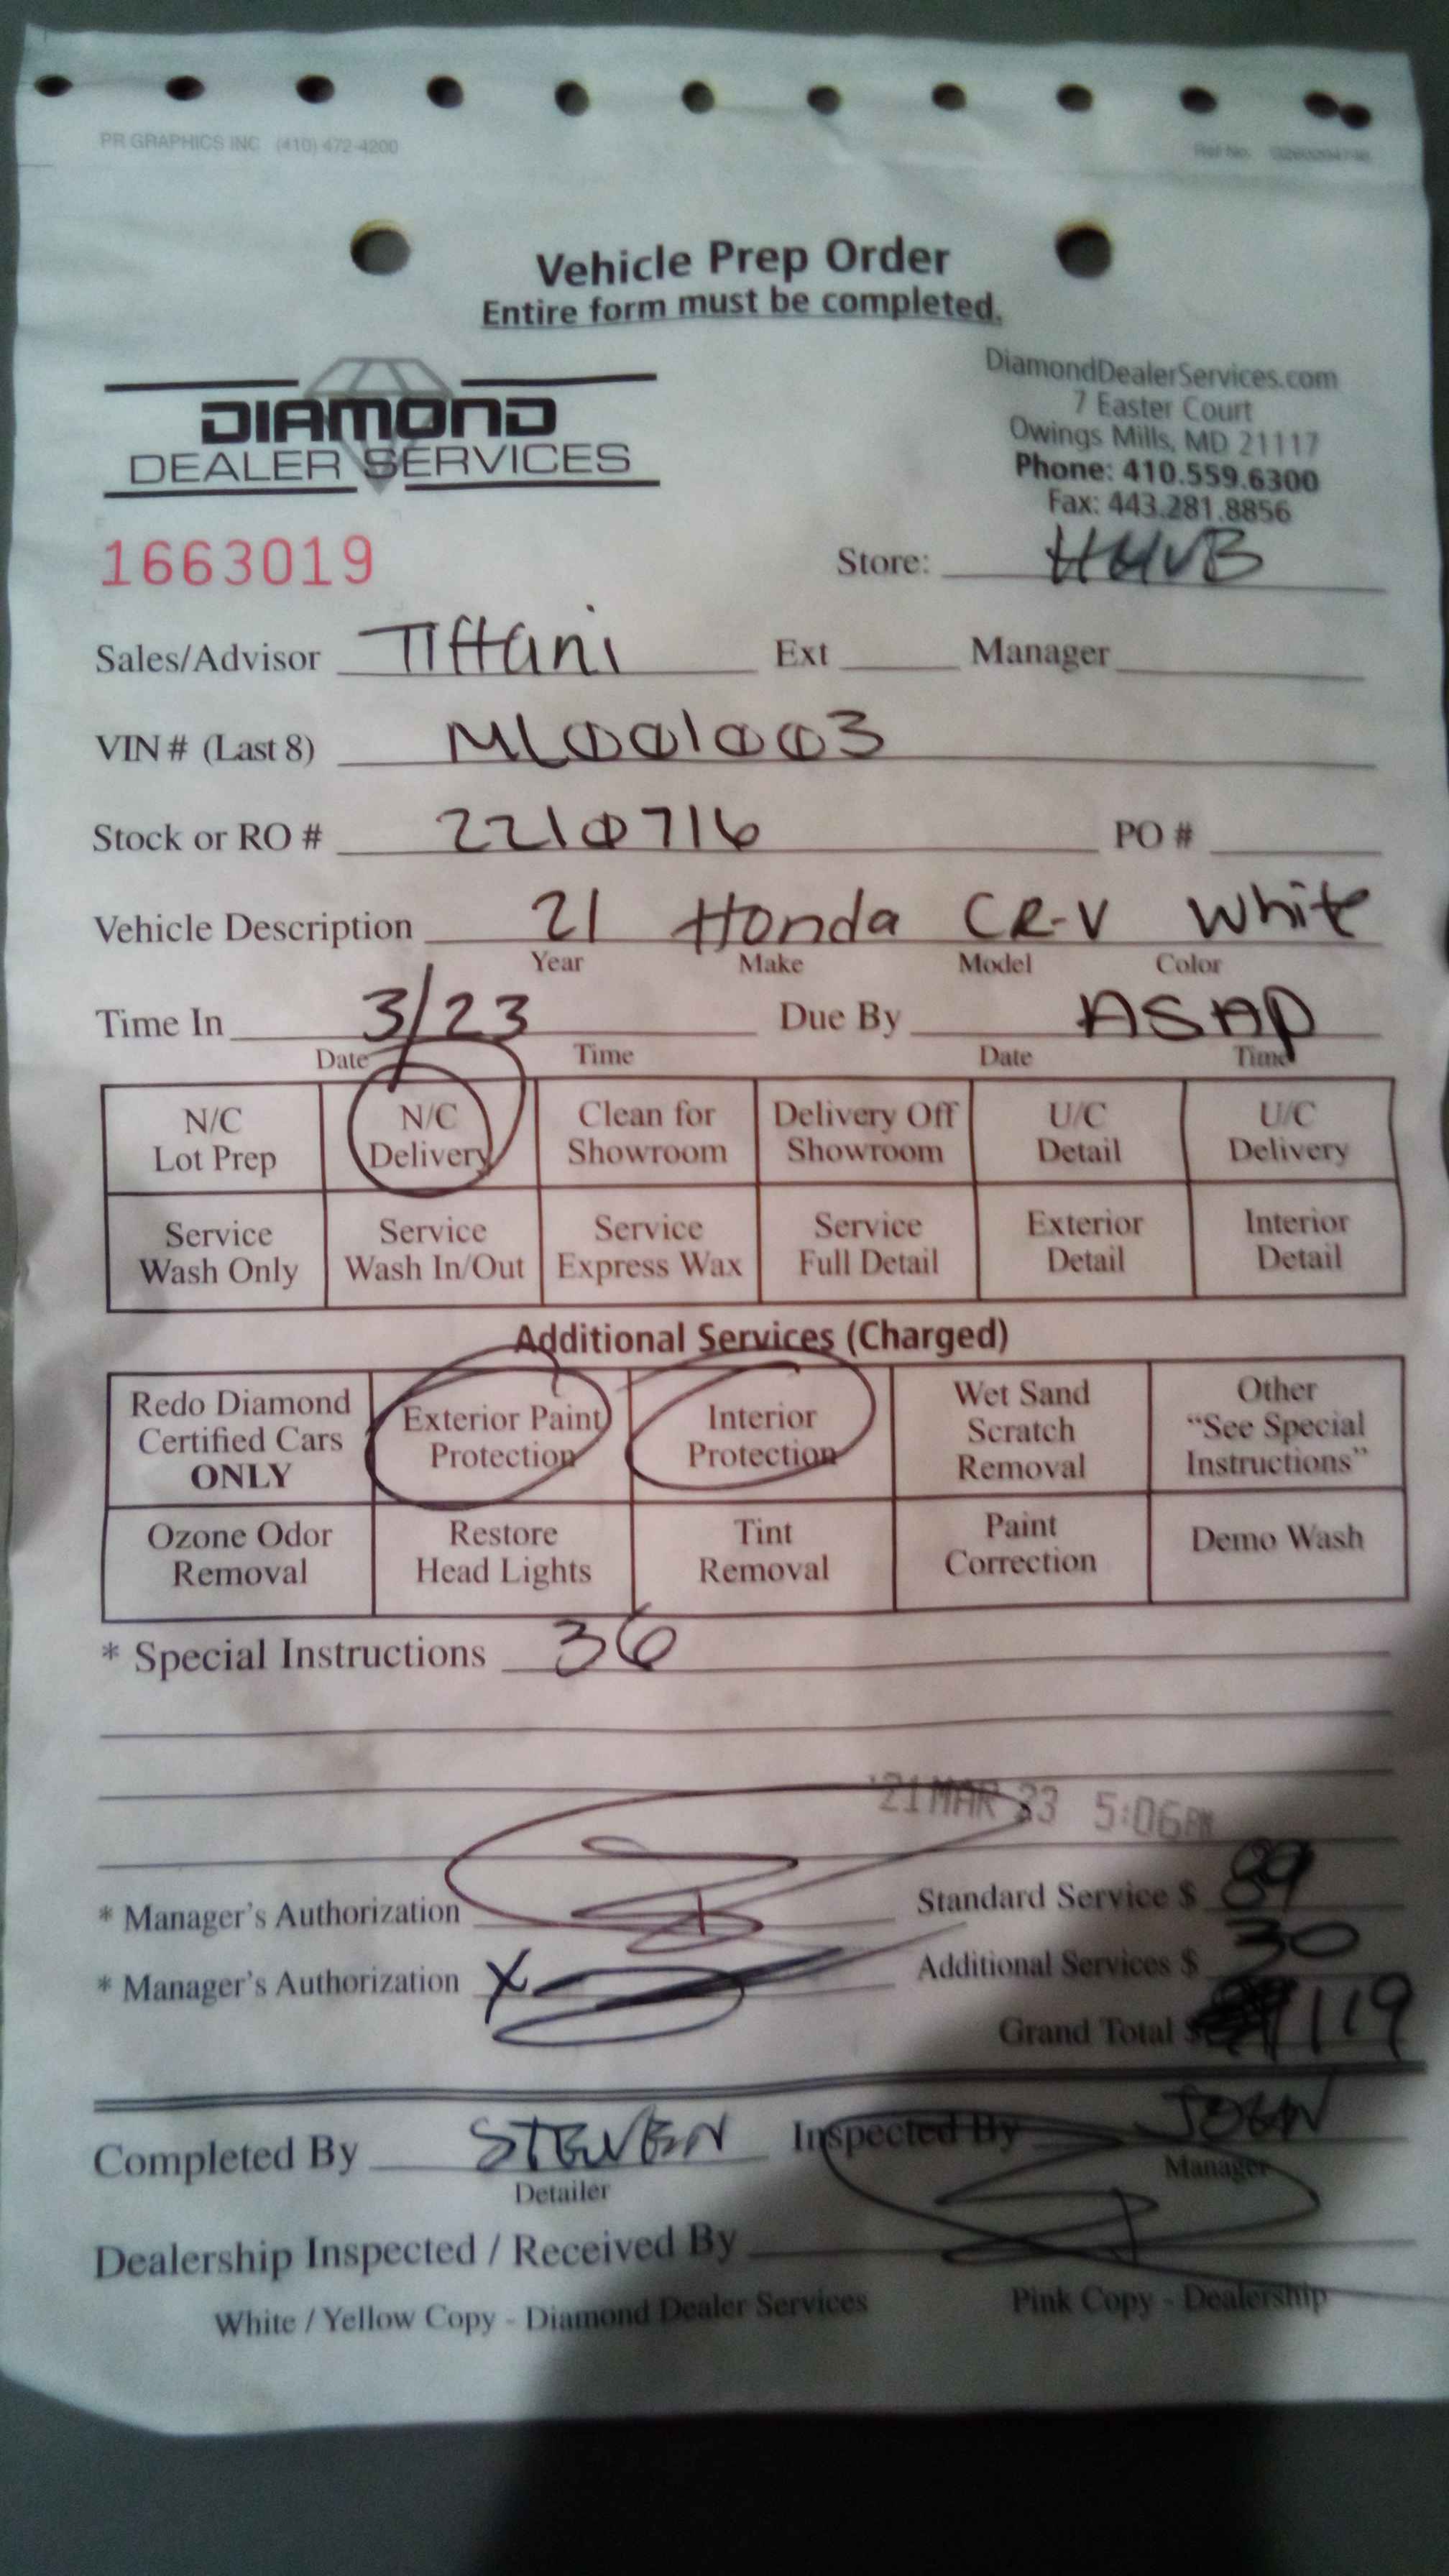 PR GRAPHICS INC (410) 472-4200
Ref No.
Vehicle Prep Order
Entire form must be completed.
DIAMOND
DEALER SERVICES
DiamondDealerServices.com
7 Easter Court
Owings Mills, MD 21117
Phone: 410.559.6300
Fax: 443.281.8856
1663019
Store:
Sales/Advisor Tiffani Ext Manager
VIN # (Last 8) ML001003
Stock or RO # 2210716 PO #
Vehicle Description 21 Honda CR-V White
Year Make Model Color
Time In 3/23 Due By ASAP
Date Time Date Time
N/C Lot Prep N/C Delivery Clean for Showroom Delivery Off Showroom U/C Detail U/C Delivery
Service Wash Only Service Wash In/Out Service Express Wax Service Full Detail Exterior Detail Interior Detail
Additional Services (Charged)
Redo Diamond Certified Cars ONLY Exterior Paint Protection Interior Protection Wet Sand Scratch Removal Other "See Special Instructions"
Ozone Odor Removal Restore Head Lights Tint Removal Paint Correction Demo Wash
* Special Instructions 36
'21 MAR 23 5:06PM
* Manager's Authorization Standard Service $ 89
* Manager's Authorization X Additional Services $ 30
Grand Total $ 119
Completed By STEVEN Inspected By JOHN
Detailer Manager
Dealership Inspected / Received By
White / Yellow Copy - Diamond Dealer Services Pink Copy - Dealership